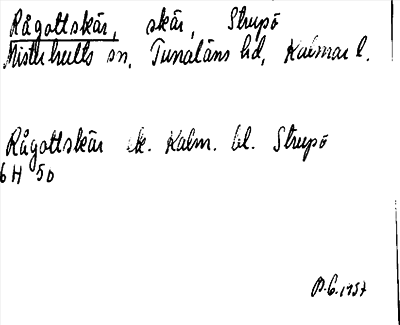 Rågottskär, skär, Strupö
Misterhults sn, Tunaläns hd, Kalmar l.
Rågottskär ek. Kalm. bl. Strupö
6 H 5 D
1957